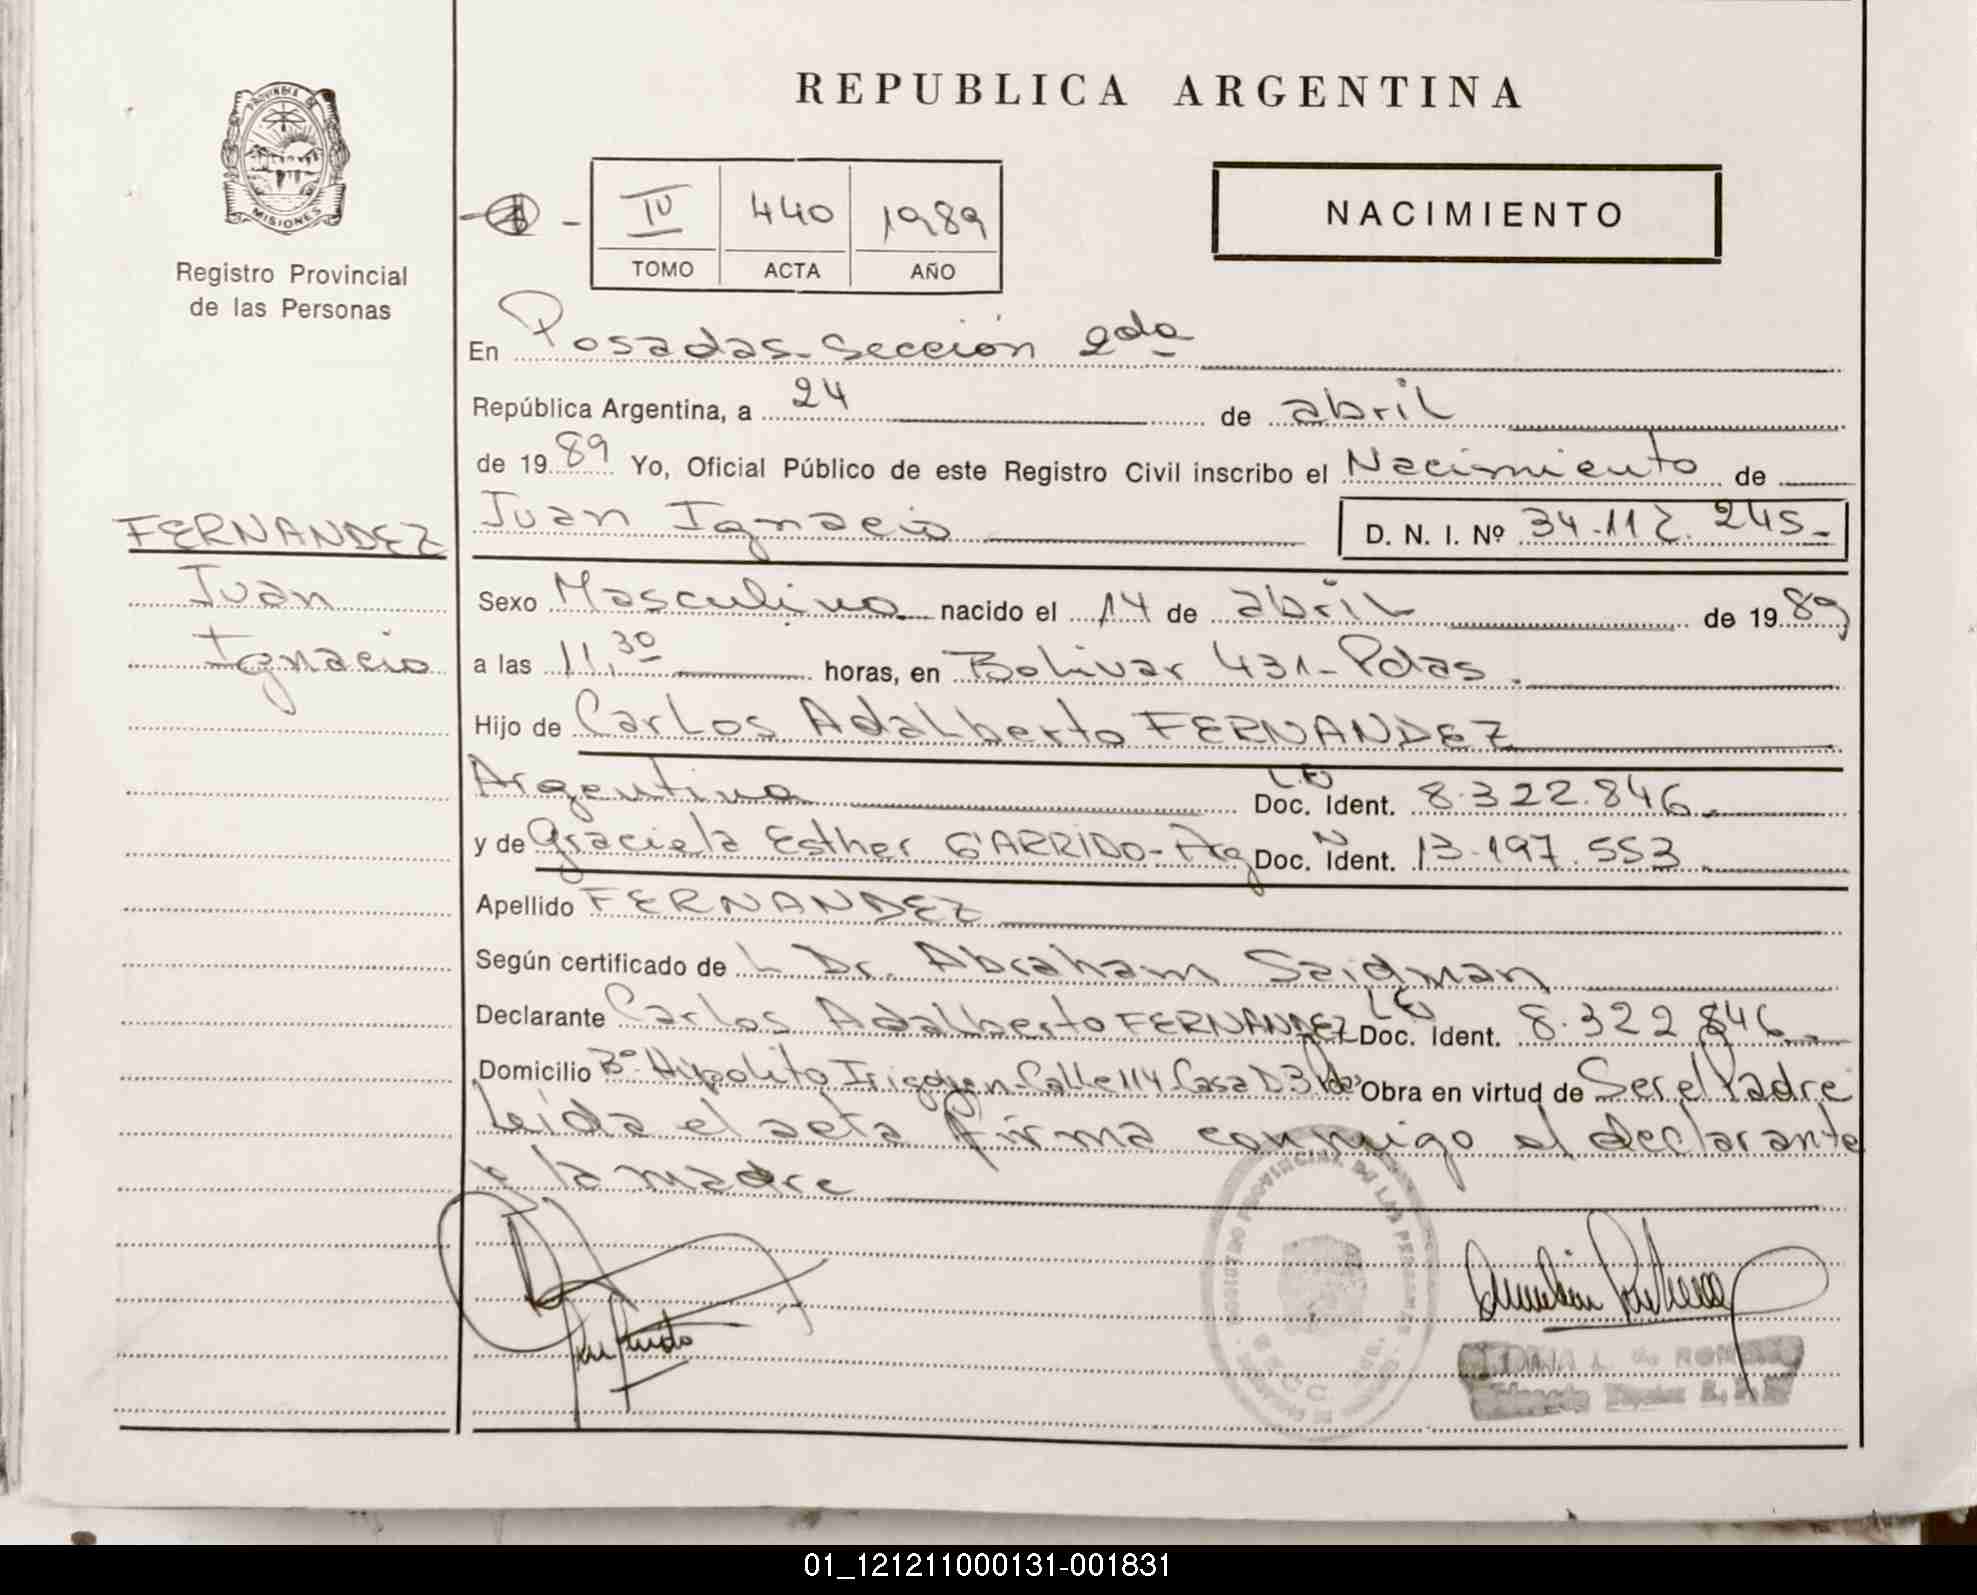 PROVINCIA DE
MISIONES
Registro Provincial
de las Personas
REPUBLICA ARGENTINA
IV 440 1989
TOMO ACTA AÑO
NACIMIENTO
En Posadas-Sección 2da
República Argentina, a 24 de abril
de 1989 Yo, Oficial Público de este Registro Civil inscribo el Nacimiento de
Juan Ignacio D. N. I. Nº 34.112.245-
FERNANDEZ
Juan
Ignacio
Sexo Masculino nacido el 14 de abril de 1989
a las 11,30 horas, en Bolivar 431-Pdas.
Hijo de Carlos Adalberto FERNANDEZ
Argentina L.E Doc. Ident. 8.322.846.
y de Graciela Esther GARRIDO-Arg Doc. N Ident. 13.197.553.
Apellido FERNANDEZ
Según certificado de L Dr. Abraham Saigman
Declarante Carlos Adalberto FERNANDEZ LE Doc. Ident. 8.322.846.
Domicilio Bº Hipolito Irigoyen-Calle 114-Casa D3 Obra en virtud de Ser el Padre
Leída el acta firma conmigo el declarante
y la madre
01_121211000131-001831